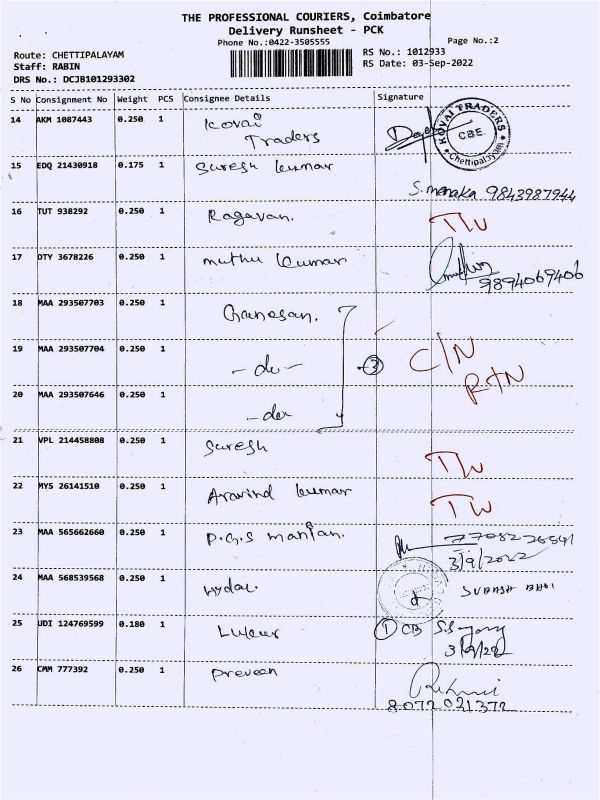 THE PROFESSIONAL COURIERS, Coimbatore
Delivery Runsheet - PCK
Phone No.:0422-3505555
Page No.:2
Route: CHETTIPALAYAM
Staff: RABIN
DRS No.: DCJB101293302
RS No.: 1012933
RS Date: 03-Sep-2022
S No Consignment No Weight PCS Consignee Details Signature
14 AKM 1087443 0.250 1 Kovai Traders
KOVAI TRADERS CBE. Chettipalayam
15 EDQ 21430918 0.175 1 Suresh Kumar
S. menaka 9843987944
16 TUT 938292 0.250 1 Ragavan.
17 OTY 3678226 0.250 1 muthu kumar
9894069406
18 MAA 293507703 0.250 1 Ganesan.
19 MAA 293507704 0.250 1 -do-
3 C/N
RTN
20 MAA 293507646 0.250 1 -do-
21 VPL 214458808 0.250 1 Suresh
22 MYS 26141510 0.250 1 Aravind kumar
23 MAA 565662660 0.250 1 P.G.S manian.
3/9/2022
24 MAA 568539568 0.250 1
SUBASH BABU
25 UDI 124769599 0.180 1
1 CB
3/9/22
26 CMM 777392 0.250 1 Praveen
8072021372